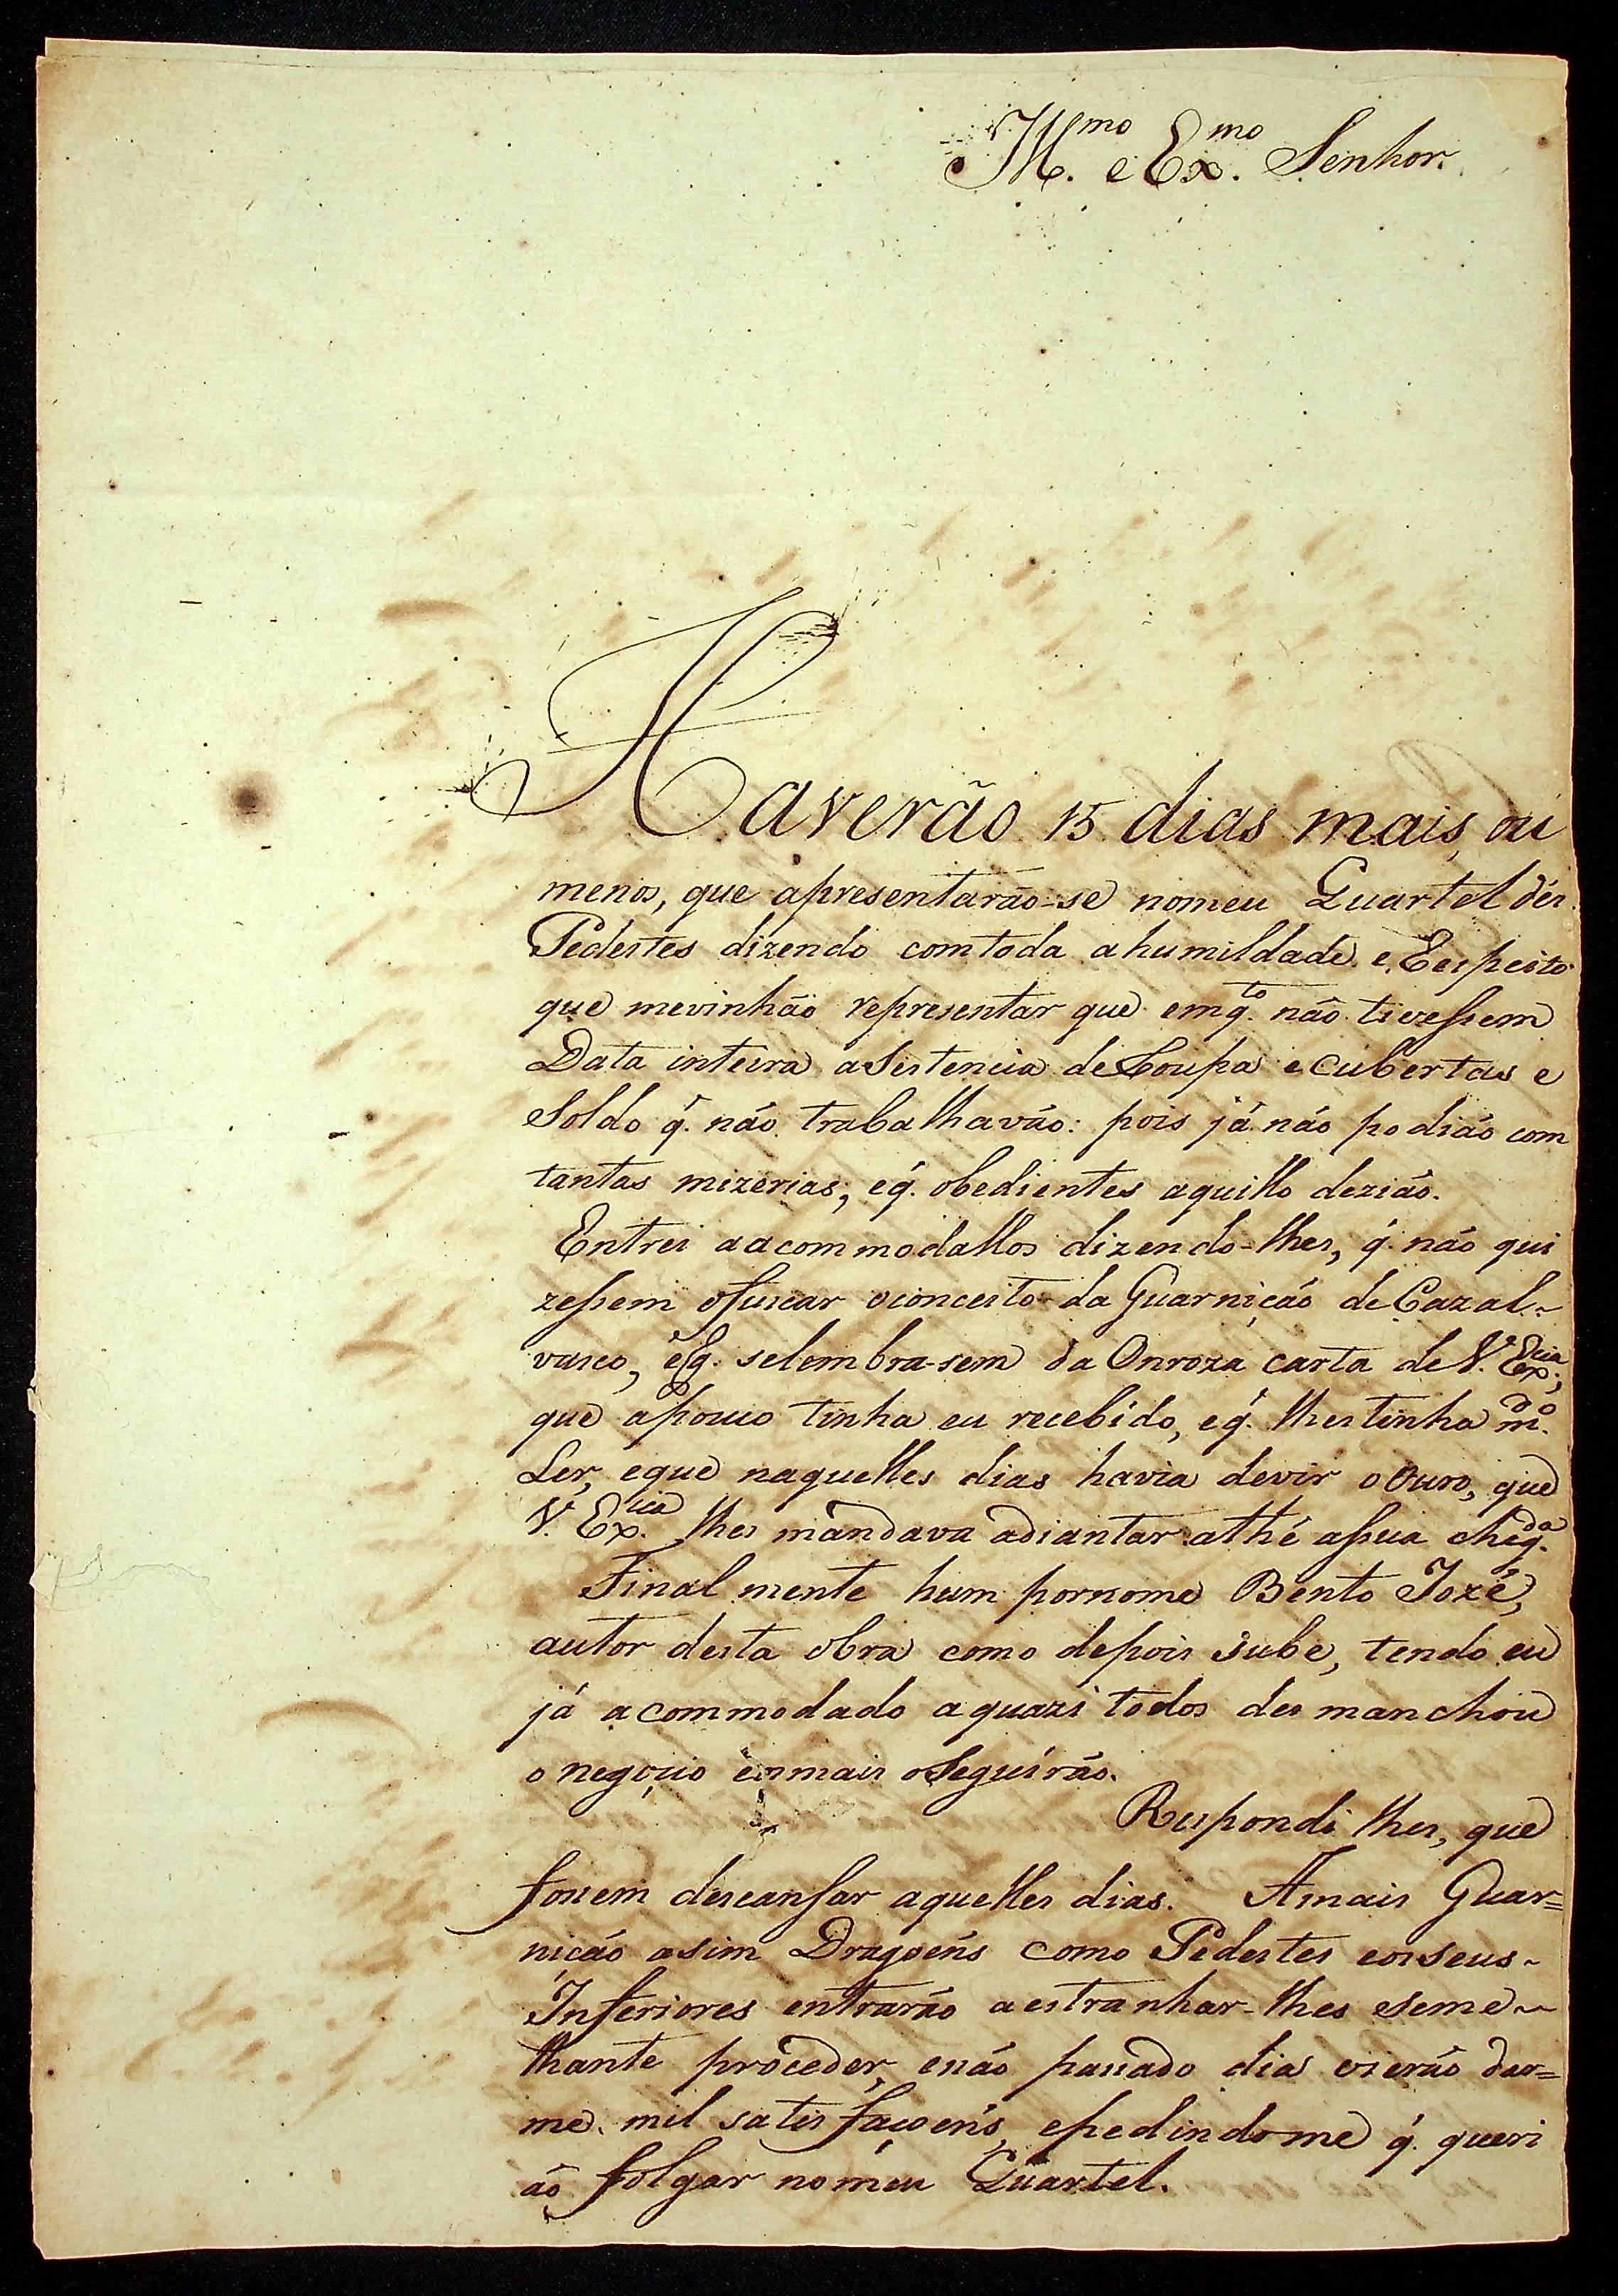 Ill.mo e Ex.mo Senhor.
Haverão 15 dias mais, ou
menos, que apresentarão-se nomeu Quartel dés
Pedestes dizendo comtoda ahumildade e Respeito
que mevinhão representar que emq.to não tivessem
Data inteira asistencia de Roupa e cubertas e
Soldo q. não trabalhavão: pois já não podião com
tantas mizerias; eq. obedientes aquillo dezião.
Entrei aacommodallos dizendo-lhes, q. não qui
zessem ofuscar oconceito da Guarnição de Cazal-
vasco, e q. selembra-sem da Onroza carta de V. Ex.cia,
que apouco tinha eu recebido, eq. lhestinha m.do
Ler, eque naquelles dias havia devir o Ouro, que
V. Ex.cia lhes mandava adiantar athé assua cheg.da
Final mente hum pornome Bento Jozé,
autor desta obra como depois sube, tendo eu
já acommodado aquazi todos des manchou
o negoçio eosmais oSeguirão.
Respondi lhes, que
fossem descansar aquelles dias. Amais Guar=
nição asim Dragoens como Pedestes eosseus-
Inferiores entrarão aestranhar-lhes seme-
lhante proceder, enão passado dia vierão dar=
me mil satisfaçoens, epedindome q. queri
ão folgar nomeu Quartel.